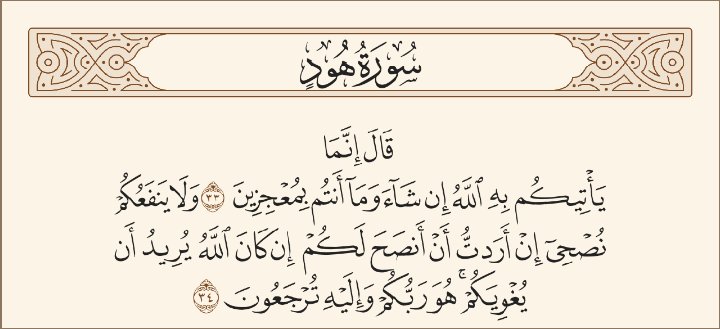 سُورَةُ هُودٍ
قَالَ إِنَّمَا
يَأْتِيكُم بِهِ ٱللَّهُ إِن شَآءَ وَمَآ أَنتُم بِمُعْجِزِينَ ٣٣ وَلَا يَنفَعُكُمْ
نُصْحِىٓ إِنْ أَرَدتُّ أَنْ أَنصَحَ لَكُمْ إِن كَانَ ٱللَّهُ يُرِيدُ أَن
يُغْوِيَكُمْ ۚ هُوَ رَبُّكُمْ وَإِلَيْهِ تُرْجَعُونَ ٣٤